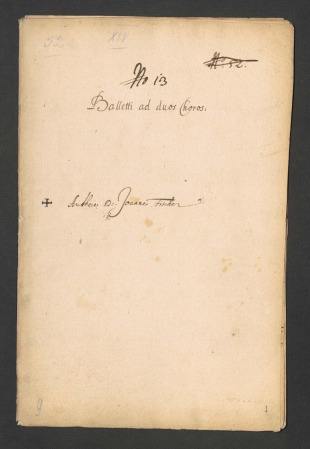 52 XIV
No 12.
No 13
Balletti ad duos Choros.
Authore D: Joanne Fischer
9 1